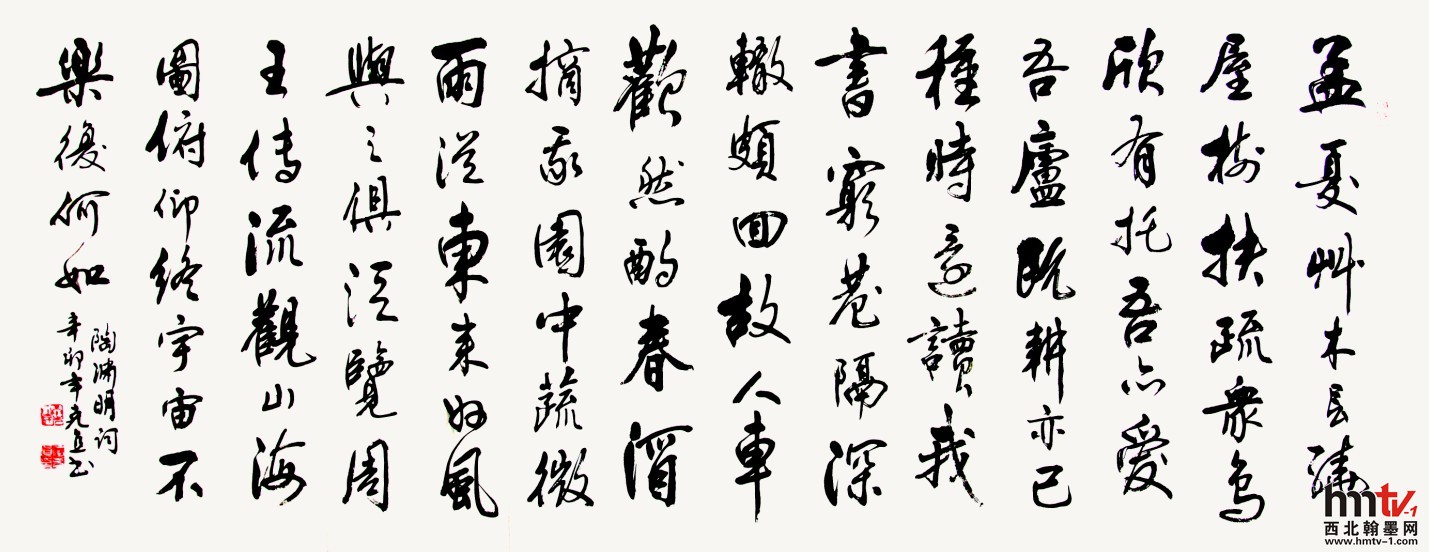 孟夏艸木長繞
屋樹扶疏衆鳥
欣有托吾亦愛
吾廬既耕亦已
種時還讀我
書窮巷隔深
轍頗回故人車
歡然酌春酒
摘我園中蔬微
雨從東來好風
與之俱泛覽周
王傳流觀山海
圖俯仰終宇宙不
樂復何如
陶淵明詞
辛卯年书
hmtv-1
西北翰墨网
www.hmtv-1.com